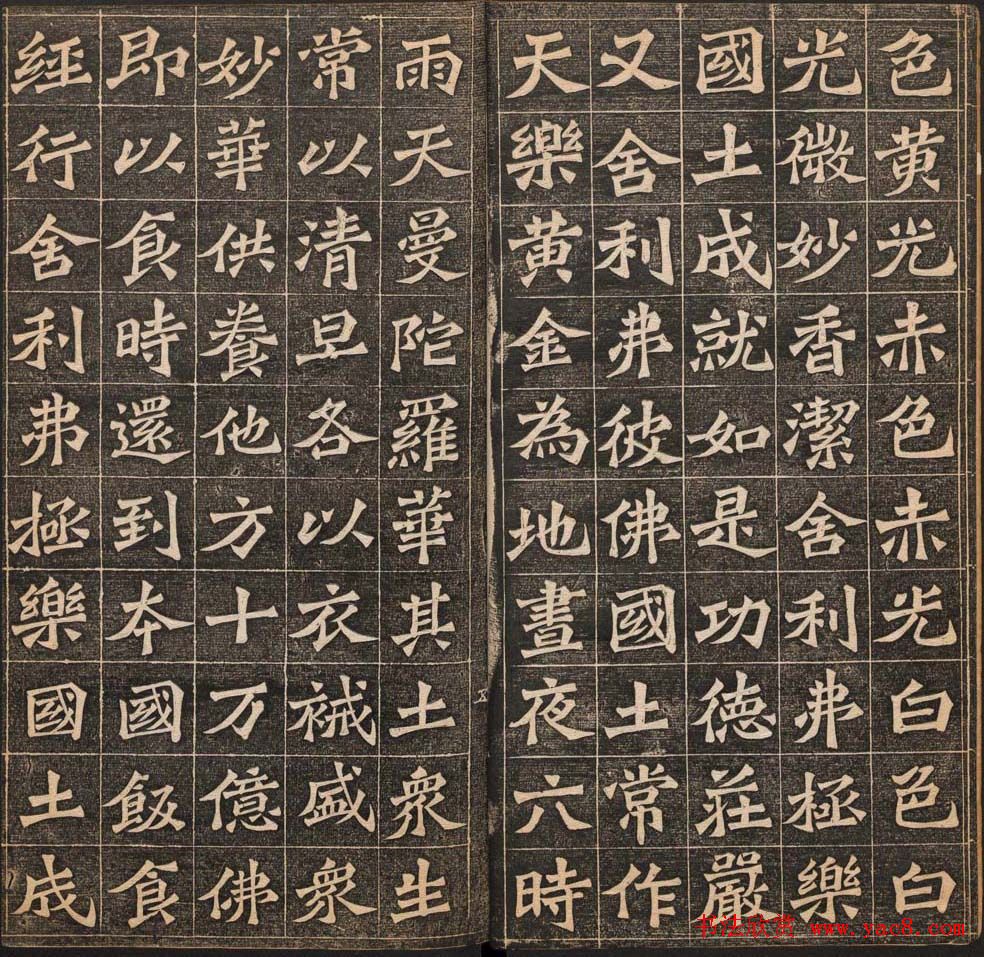 色黄光赤色赤光白色白
光微妙香潔舍利弗極樂
國土成就如是功德莊嚴
又舍利弗彼佛國土常作
天樂黄金為地晝夜六時
雨天曼陀羅華其土衆生
常以清旦各以衣裓盛衆
妙華供養他方十万億佛
即以食時還到本國飯食
經行舍利弗極樂國土成
五
书法欣赏 www.yac8.com